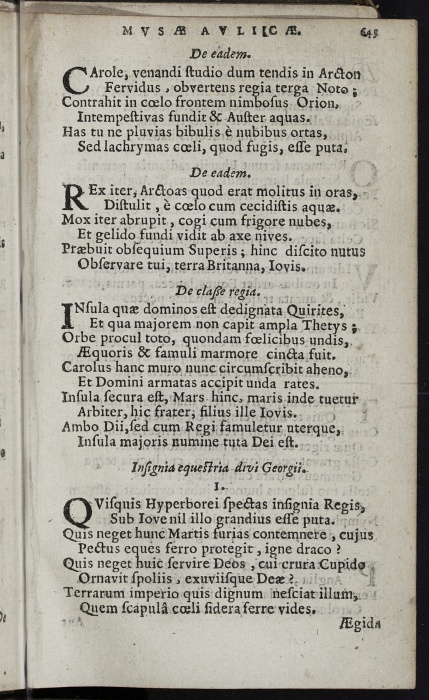 MVSÆ AVLICÆ. 645
De eadem.
CArole, venandi ſtudio dum tendis in Arcton
Fervidus, obvertens regia terga Noto;
Contrahit in cœlo frontem nimboſus Orion,
Intempeſtivas fundit & Auſter aquas.
Has tu ne pluvias bibulis è nubibus ortas,
Sed lachrymas cœli, quod fugis, eſſe puta.
De eadem.
REx iter, Arctoas quod erat molitus in oras,
Diſtulit, è cœlo cum cecidiſtis aquæ.
Mox iter abrupit, cogi cum frigore nubes,
Et gelido fundi vidit ab axe nives.
Præbuit obſequium Superis; hinc diſcito nutus
Obſervare tui, terra Britanna, Iovis.
De claſſe regia.
INſula quæ dominos eſt dedignata Quirites,
Et qua majorem non capit ampla Thetys;
Orbe procul toto, quondam fœlicibus undis,
Æquoris & famuli marmore cincta fuit.
Carolus hanc muro nunc circumſcribit aheno,
Et Domini armatas accipit unda rates.
Inſula ſecura eſt, Mars hinc, maris inde tuetur
Arbiter, hic frater, filius ille Iovis.
Ambo Dii, ſed cum Regi famuletur uterque,
Inſula majoris numine tuta Dei eſt.
Inſignia equeſtria divi Georgii.
I.
QViſquis Hyperborei ſpectas inſignia Regis,
Sub Iove nil illo grandius eſſe puta.
Quis neget hunc Martis furias contemnere, cujus
Pectus eques ferro protegit, igne draco?
Quis neget huic ſervire Deos, cui crura Cupido
Ornavit ſpoliis, exuviiſque Deæ?
Terrarum imperio quis dignum neſciat illum,
Quem ſcapulâ cœli ſidera ferre vides.
Ægida